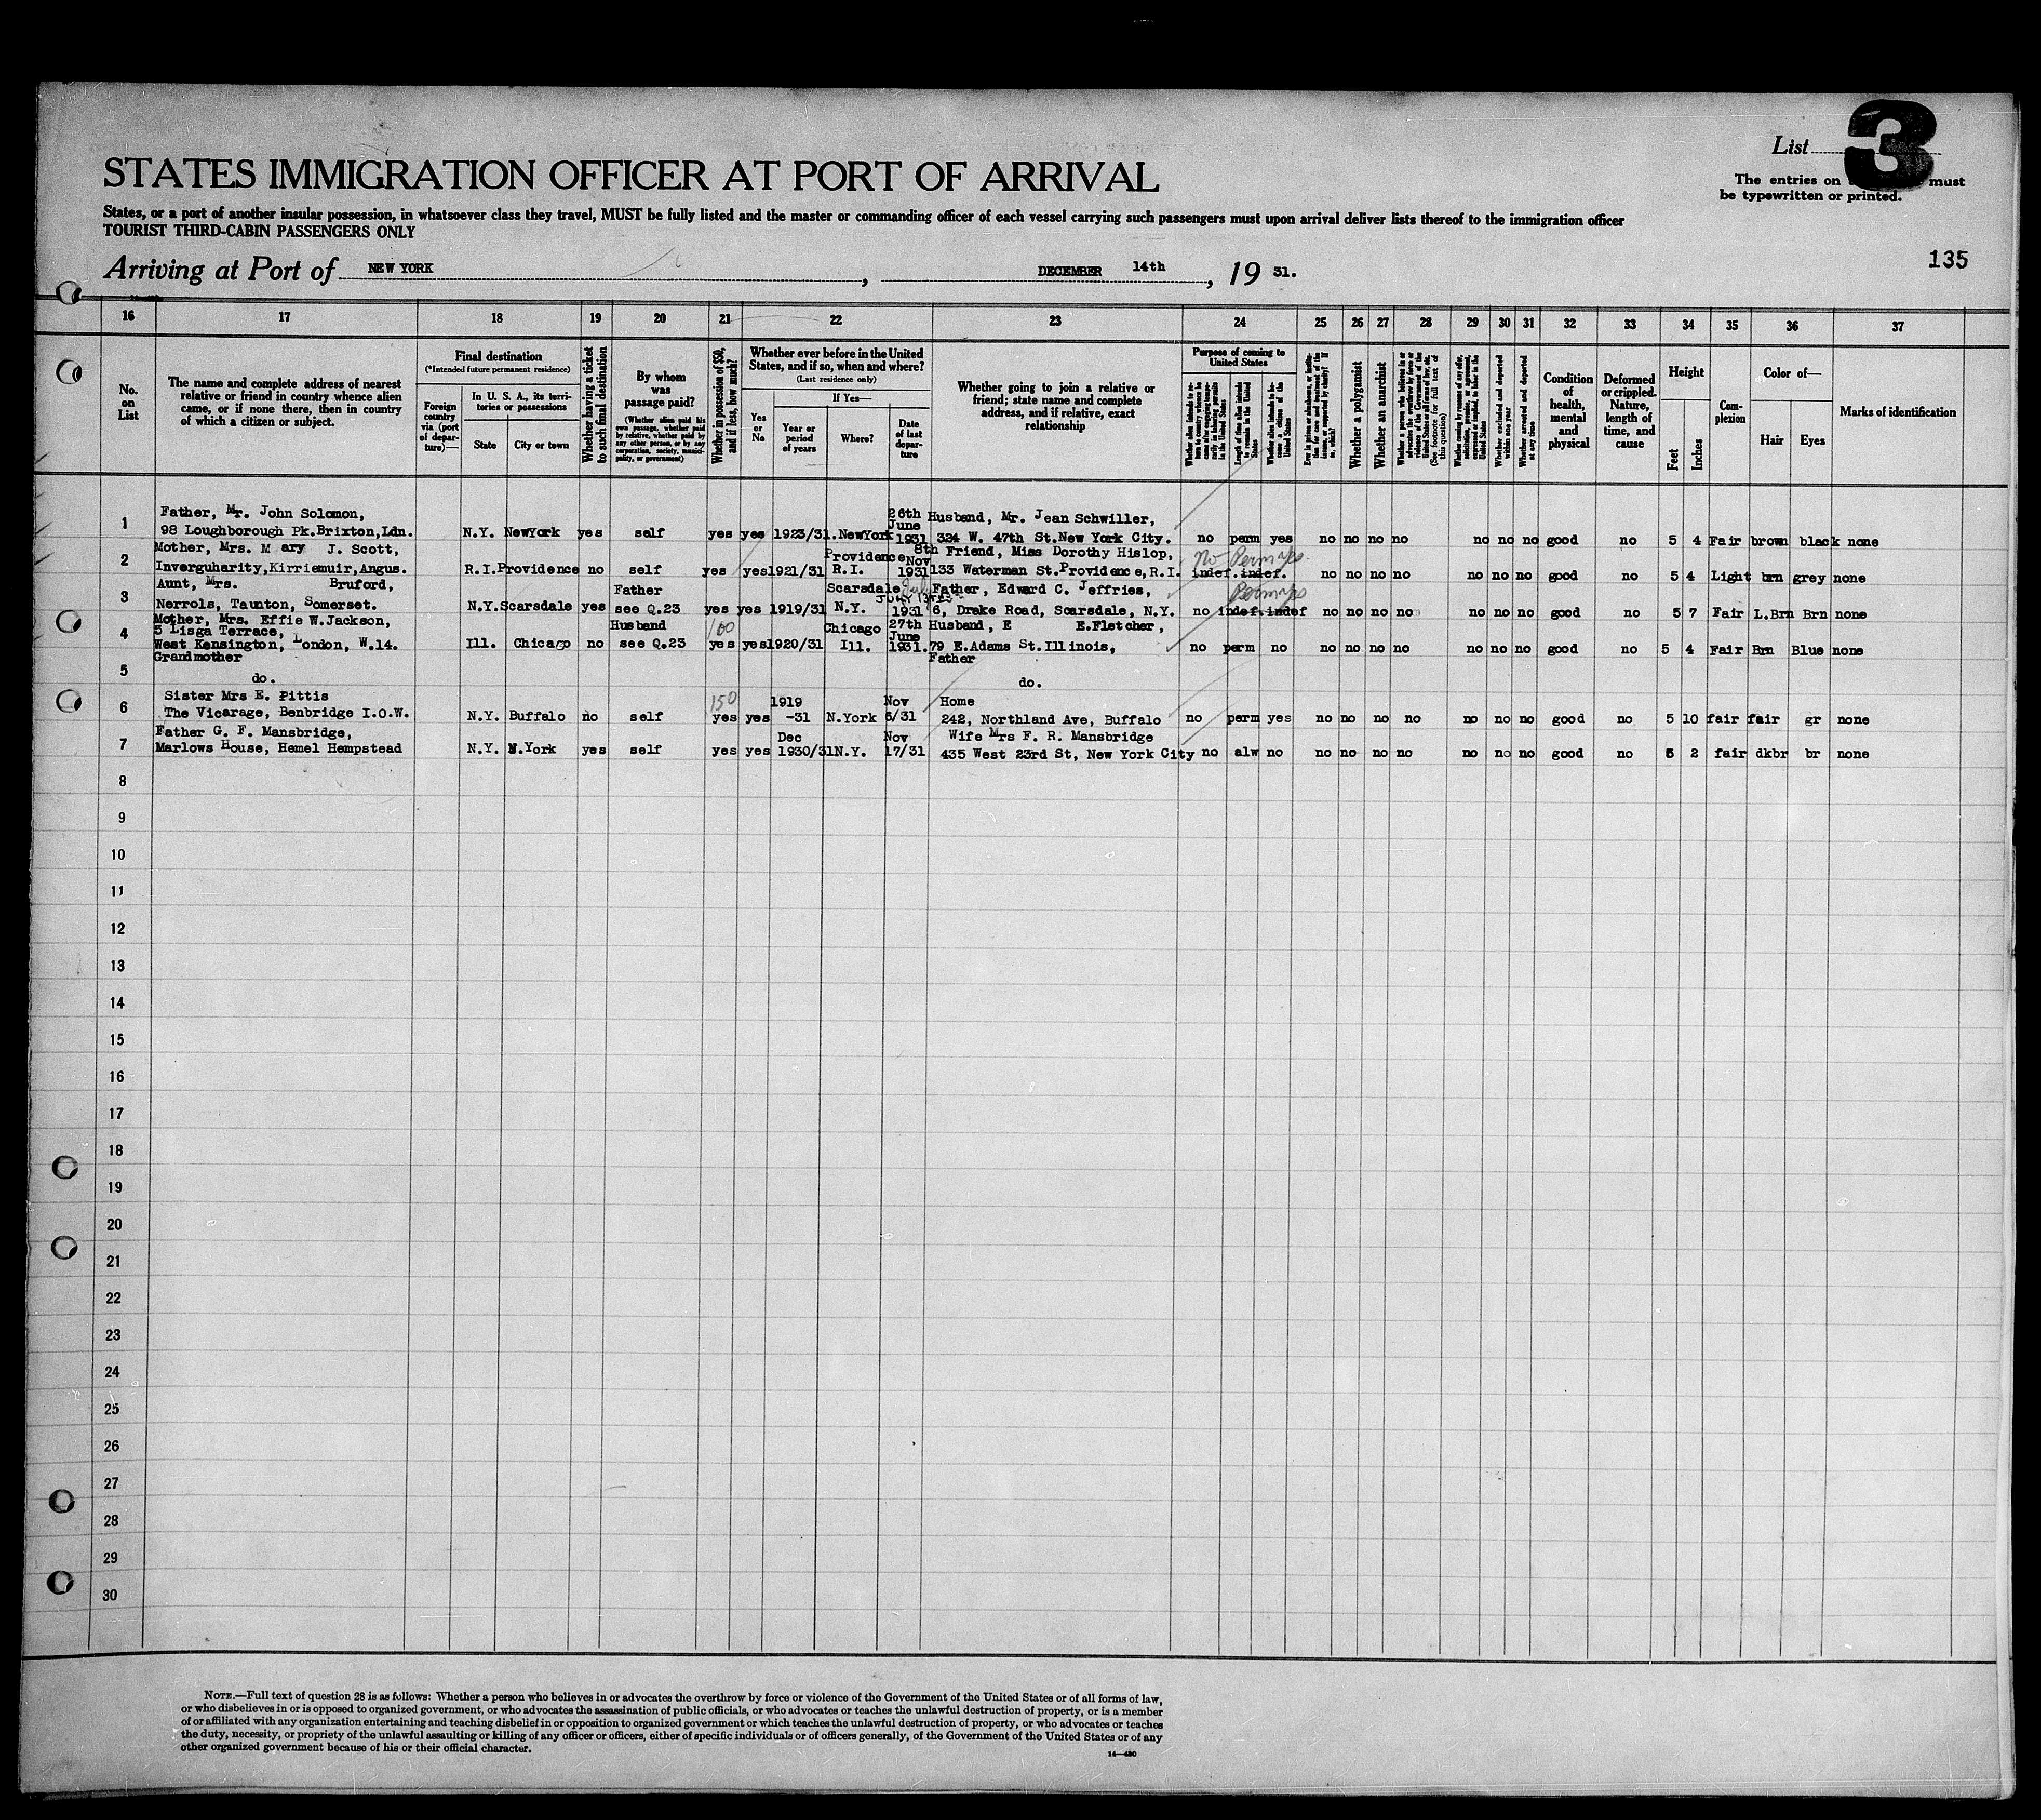 List 3
STATES IMMIGRATION OFFICER AT PORT OF ARRIVAL
The entries on must
be typewritten or printed.
States, or a port of another insular possession, in whatsoever class they travel, MUST be fully listed and the master or commanding officer of each vessel carrying such passengers must upon arrival deliver lists thereof to the immigration officer
TOURIST THIRD-CABIN PASSENGERS ONLY
135
Arriving at Port of NEW YORK, DECEMBER 14th, 19 31.
16 17 18 19 20 21 22 23 24 25 26 27 28 29 30 31 32 33 34 35 36 37
No. on List
The name and complete address of nearest relative or friend in country whence alien came, or if none there, then in country of which a citizen or subject.
Final destination
(*Intended future permanent residence)
Foreign country via (port of departure)—
In U. S. A., its territories or possessions
State City or town
Whether having a ticket to such final destination
By whom was passage paid?
(Whether alien paid his own passage, whether paid by relative, whether paid by any other person, or by any corporation, society, municipality, or government)
Whether in possession of $50, and if less, how much?
Whether ever before in the United States, and if so, when and where?
(Last residence only)
Yes or No
If Yes—
Year or period of years
Where?
Date of last departure
Whether going to join a relative or friend; state name and complete address, and if relative, exact relationship
Purpose of coming to United States
Length of time alien intends to remain in the United States
Whether alien intends to become a citizen of the United States
Whether a polygamist
Whether an anarchist
(See footnote for full text of this question)
Whether excluded and deported within one year
Whether arrested and deported at any time
Condition of health, mental and physical
Deformed or crippled. Nature, length of time, and cause
Height
Feet Inches
Complexion
Color of—
Hair Eyes
Marks of identification
1 Father, Mr. John Solomon,
98 Loughborough Pk.Brixton,Ldn. N.Y. NewYork yes self yes yes 1923/31.NewYork 26th June 1931 Husband, Mr. Jean Schwiller, 324 W. 47th St.New York City. no perm yes no no no no no no no good no 5 4 Fair brown black none
2 Mother, Mrs. M ary J. Scott,
Inverguharity,Kirriemuir,Angus. R.I.Providence no self yes yes1921/31 Providence R.I. 8th Nov 1931 Friend, Miss Dorothy Hislop, 133 Waterman St.Providence,R.I. no Perm yes indef.indef. no no no no no no no good no 5 4 Light brn grey none
3 Aunt, Mrs. Bruford,
Nerrols, Taunton, Somerset. N.Y.Scarsdale yes Father see Q.23 yes yes 1919/31 Scarsdale N.Y. July 1931 Father, Edward C. Jeffries, 6, Drake Road, Scarsdale, N.Y. Perm yes no indef.indef no no no no no no no good no 5 7 Fair L.Brn Brn none
4 Mother, Mrs. Effie W.Jackson,
5 Lisga Terrace,
West Kensington, London, W.14. Ill. Chicago no Husband see Q.23 100 yes yes1920/31 Chicago Ill. 27th June 1931. Husband, E E.Fletcher, 79 E.Adams St.Illinois, no perm no no no no no no no no good no 5 4 Fair Brn Blue none
5 Grandmother
do. Father do.
6 Sister Mrs E. Pittis
The Vicarage, Benbridge I.O.W. N.Y. Buffalo no self 150 yes yes 1919 -31 N.York Nov 6/31 Home 242, Northland Ave, Buffalo no perm yes no no no no no no no good no 5 10 fair fair gr none
7 Father G. F. Mansbridge,
Marlows House, Hemel Hempstead N.Y. N.York yes self yes yes Dec 1930/31N.Y. Nov 17/31 Wife Mrs F. R. Mansbridge 435 West 23rd St, New York City no alw no no no no no no no no good no 5 2 fair dkbr br none
8
9
10
11
12
13
14
15
16
17
18
19
20
21
22
23
24
25
26
27
28
29
30
NOTE.—Full text of question 28 is as follows: Whether a person who believes in or advocates the overthrow by force or violence of the Government of the United States or of all forms of law,
or who disbelieves in or is opposed to organized government, or who advocates the assassination of public officials, or who advocates or teaches the unlawful destruction of property, or is a member
of or affiliated with any organization entertaining and teaching disbelief in or opposition to organized government or which teaches the unlawful destruction of property, or who advocates or teaches
the duty, necessity, or propriety of the unlawful assaulting or killing of any officer or officers, either of specific individuals or of officers generally, of the Government of the United States or of any
other organized government because of his or their official character.
14—420